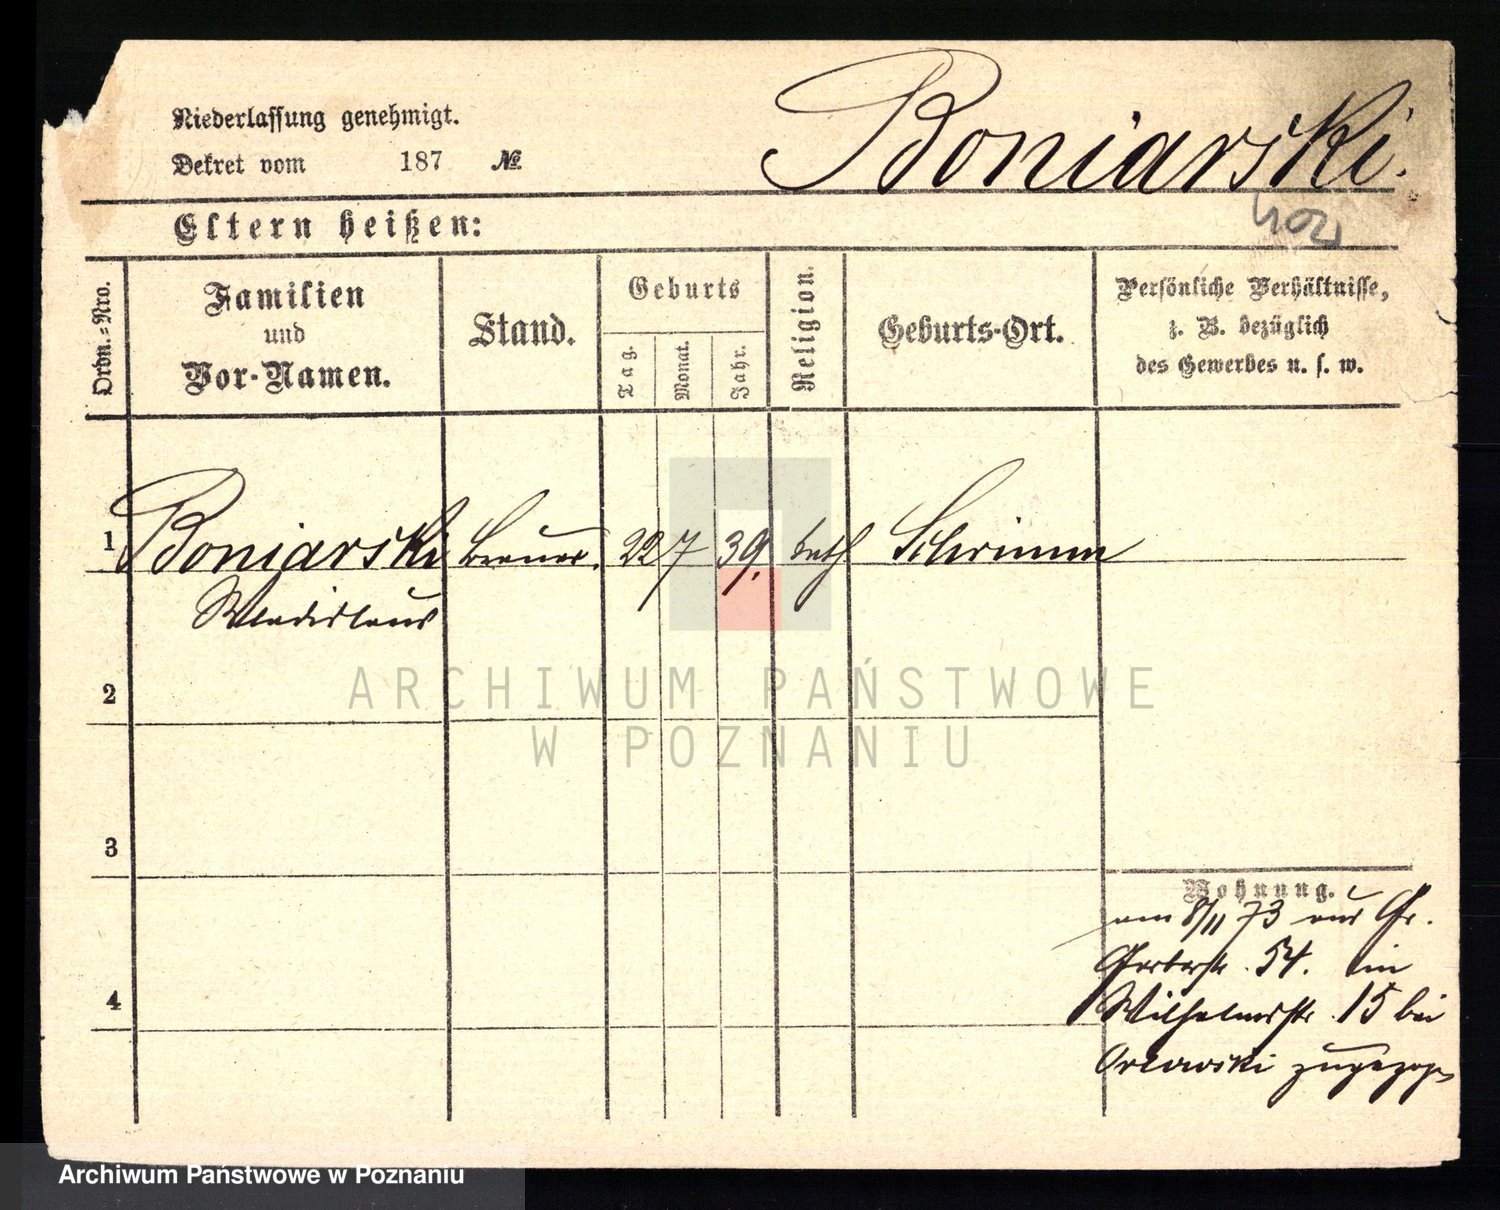 Niederlassung genehmigt.
Dekret vom 187 №
Boniarski.
Eltern heißen:
Ordn.=Nro.
Familien
und
Vor-Namen.
Stand.
Geburts
Tag.
Monat.
Jahr.
Religion.
Geburts-Ort.
Persönliche Verhältnisse,
z. B. bezüglich
des Gewerbes u. s. w.
1 Boniarski Brauer. 22 7 39. kath Schrimm
Wladislaus
2
3
4
Wohnung.
am 8/11 73 aus Gr.
Gerberstr. 54. in
Wilhelmstr. 15 bei
zugezogen
ARCHIWUM PAŃSTWOWE
W POZNANIU
Archiwum Państwowe w Poznaniu